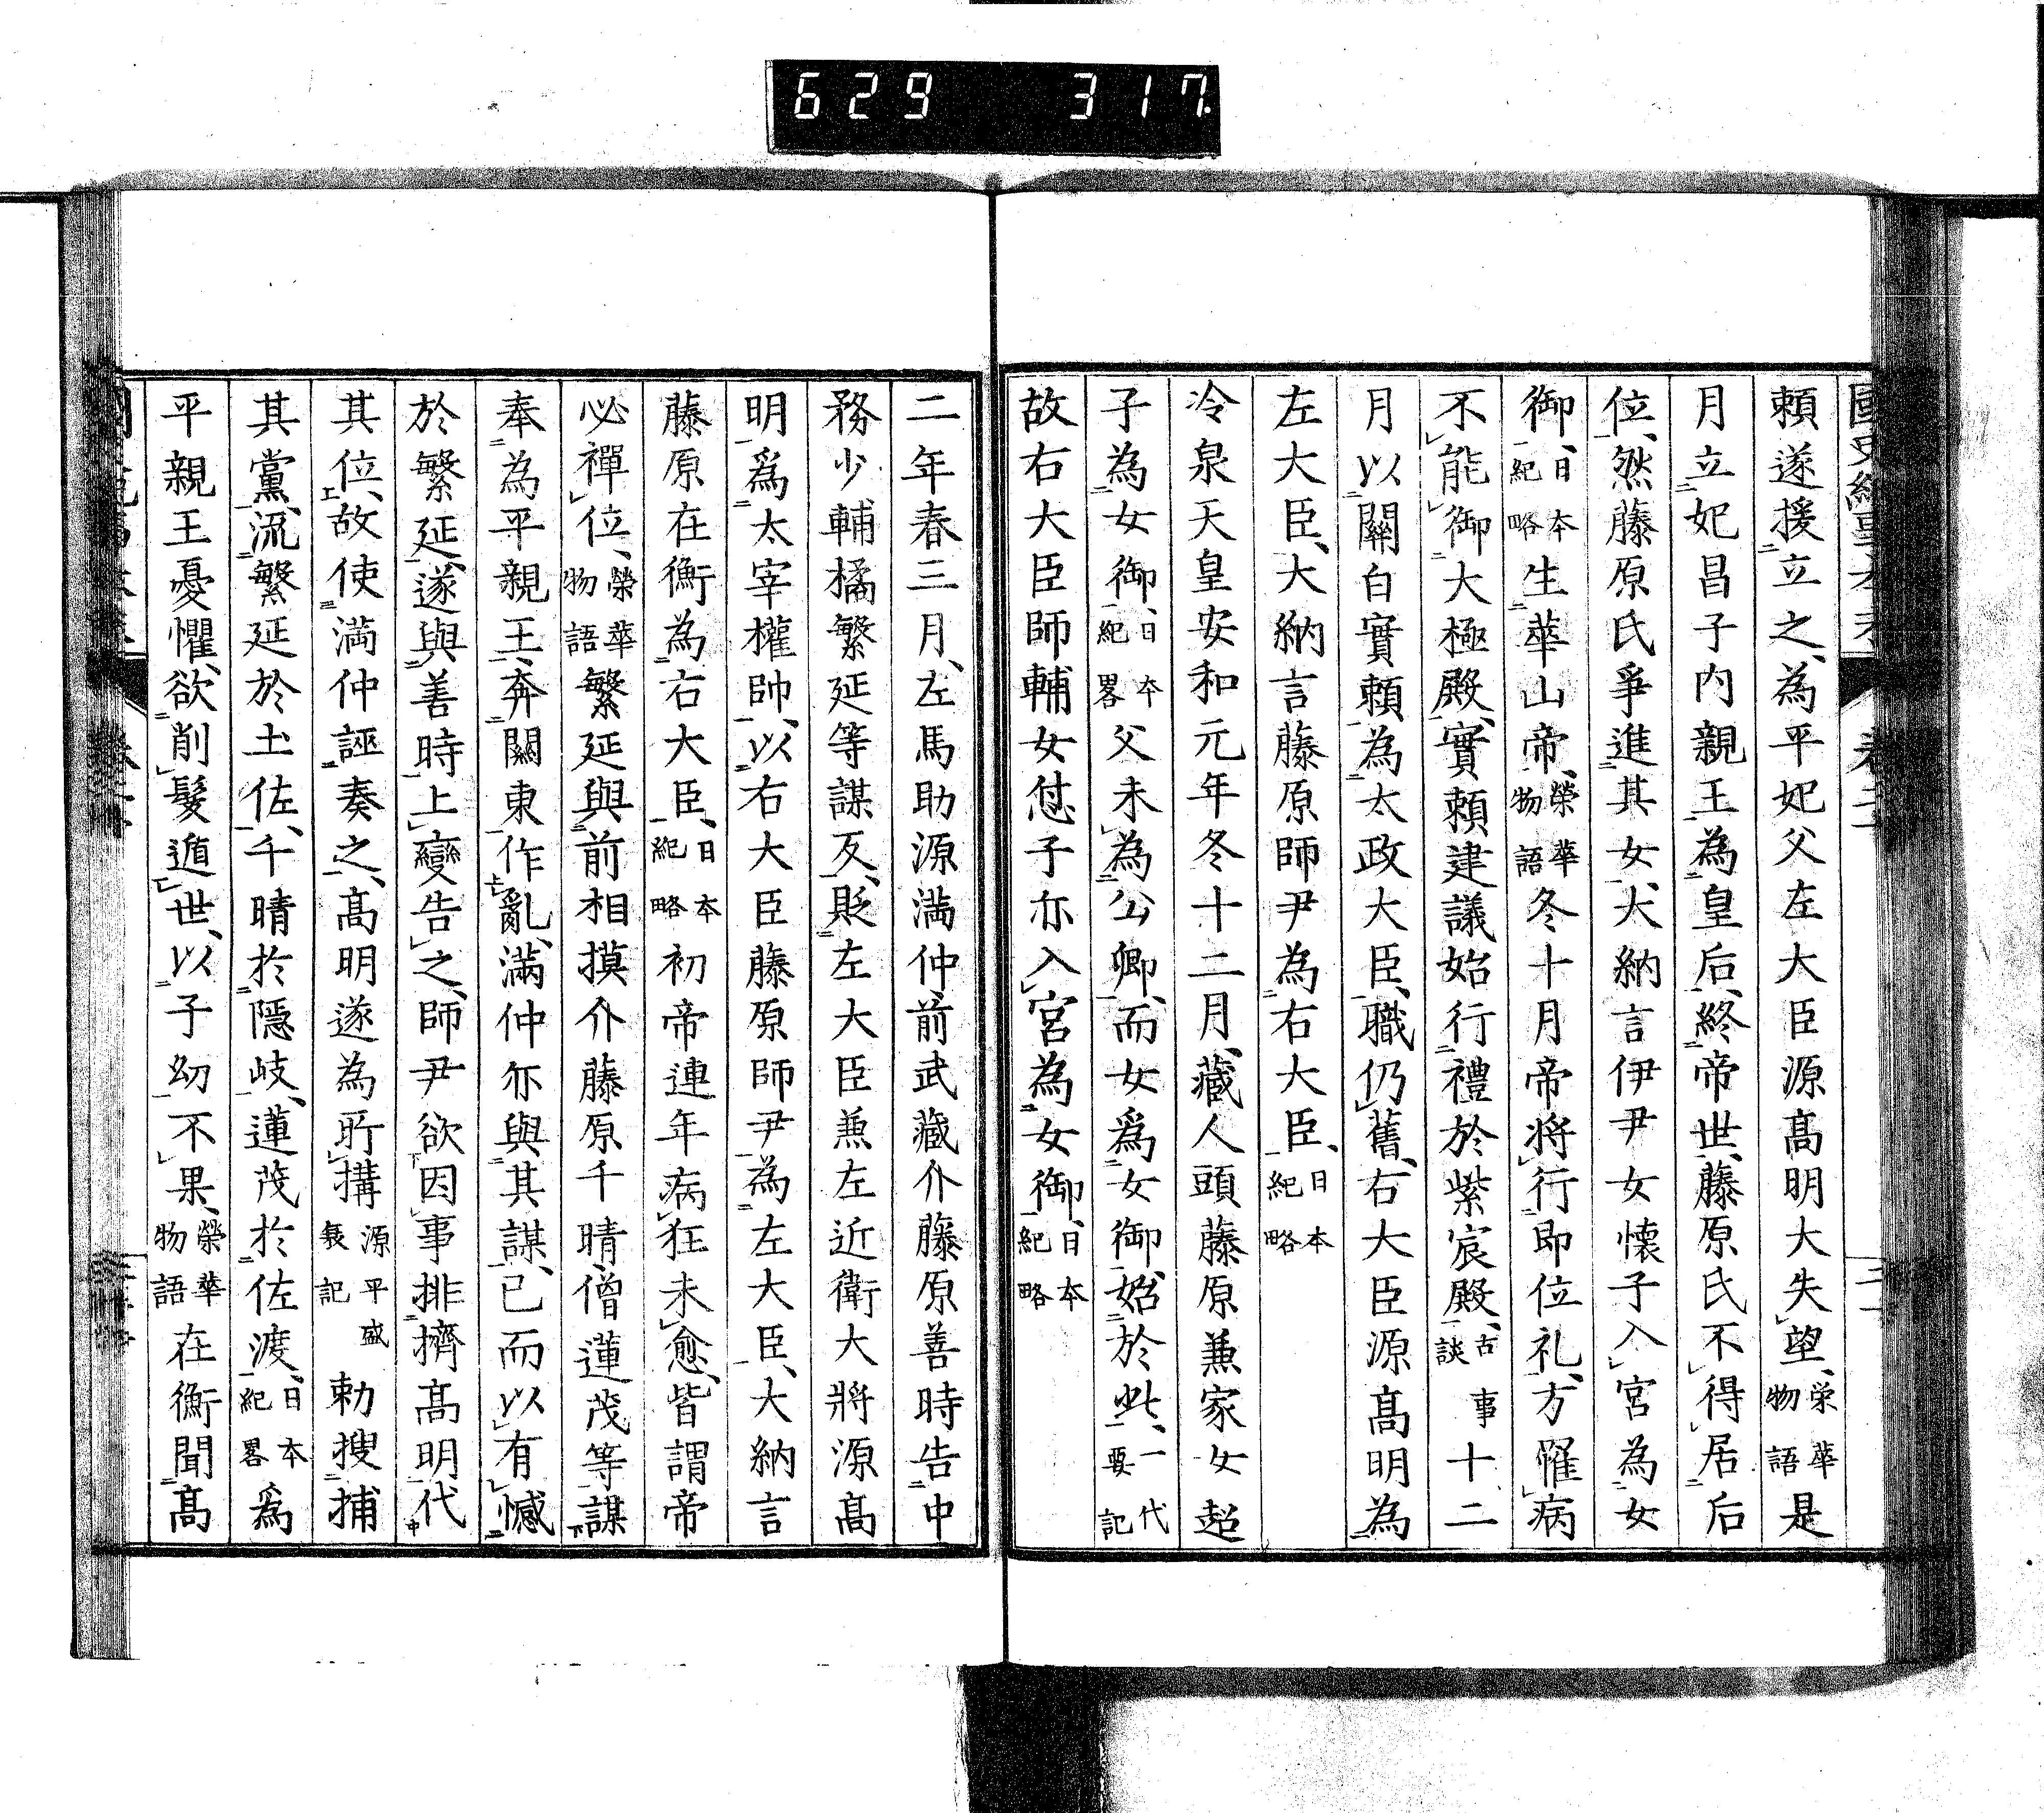 629 317
頼遂援立之、為平妃父左大臣源髙明大失望、栄華物語是
月立妃昌子内親王為皇后、終帝世、藤原氏不得居后
位、然藤原氏爭進其女、大納言伊尹女懐子入宮為女
御、日本紀略生華山帝、榮華物語冬十月帝将行即位礼、方罹病
不能御大極殿、實頼建議始行禮於紫宸殿、古事談十二
月以關白實頼為太政大臣、職仍舊、右大臣源髙明為
左大臣、大納言藤原師尹為右大臣、日本紀略
冷泉天皇安和元年冬十二月、藏人頭藤原兼家女超
子為女御、日本紀畧父未為公卿、而女爲女御、始於此、一代要記
故右大臣師輔女怤子亦入宮為女御、日本紀略
二年春三月、左馬助源満仲、前武藏介藤原善時告中
務少輔橘繁延等謀反、貶左大臣兼左近衛大將源髙
明爲太宰權帥、以右大臣藤原師尹為左大臣、大納言
藤原在衡為右大臣、日本紀略初帝連年病狂未愈、皆謂帝
必禪位、榮華物語繁延與前相摸介藤原千晴、僧蓮茂等謀
奉為平親王、奔關東作亂、滿仲亦與其謀、已而以有憾
於繁延、遂與善時上變告之、師尹欲因事排擠髙明代
其位、故使満仲誣奏之、髙明遂為所搆源平盛衰記勅搜捕
其黨、流繁延於土佐、千晴於隠岐、蓮茂於佐渡、日本紀畧爲
平親王憂懼、欲削髮遁世、以子幼不果、榮華物語在衡聞髙